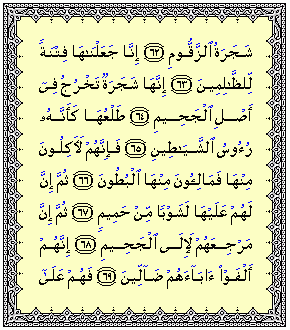 شَجَرَةُ ٱلزَّقُّومِ ﴿٦٢﴾ إِنَّا جَعَلْنَـٰهَا فِتْنَةً
لِّلظَّـٰلِمِينَ ﴿٦٣﴾ إِنَّهَا شَجَرَةٌ تَخْرُجُ فِىٓ
أَصْلِ ٱلْجَحِيمِ ﴿٦٤﴾ طَلْعُهَا كَأَنَّهُۥ
رُءُوسُ ٱلشَّيَـٰطِينِ ﴿٦٥﴾ فَإِنَّهُمْ لَـَٔاكِلُونَ
مِنْهَا فَمَالِـُٔونَ مِنْهَا ٱلْبُطُونَ ﴿٦٦﴾ ثُمَّ إِنَّ
لَهُمْ عَلَيْهَا لَشَوْبًا مِّنْ حَمِيمٍ ﴿٦٧﴾ ثُمَّ إِنَّ
مَرْجِعَهُمْ لَإِلَى ٱلْجَحِيمِ ﴿٦٨﴾ إِنَّهُمْ
أَلْفَوْا۟ ءَابَآءَهُمْ ضَآلِّينَ ﴿٦٩﴾ فَهُمْ عَلَىٰٓ